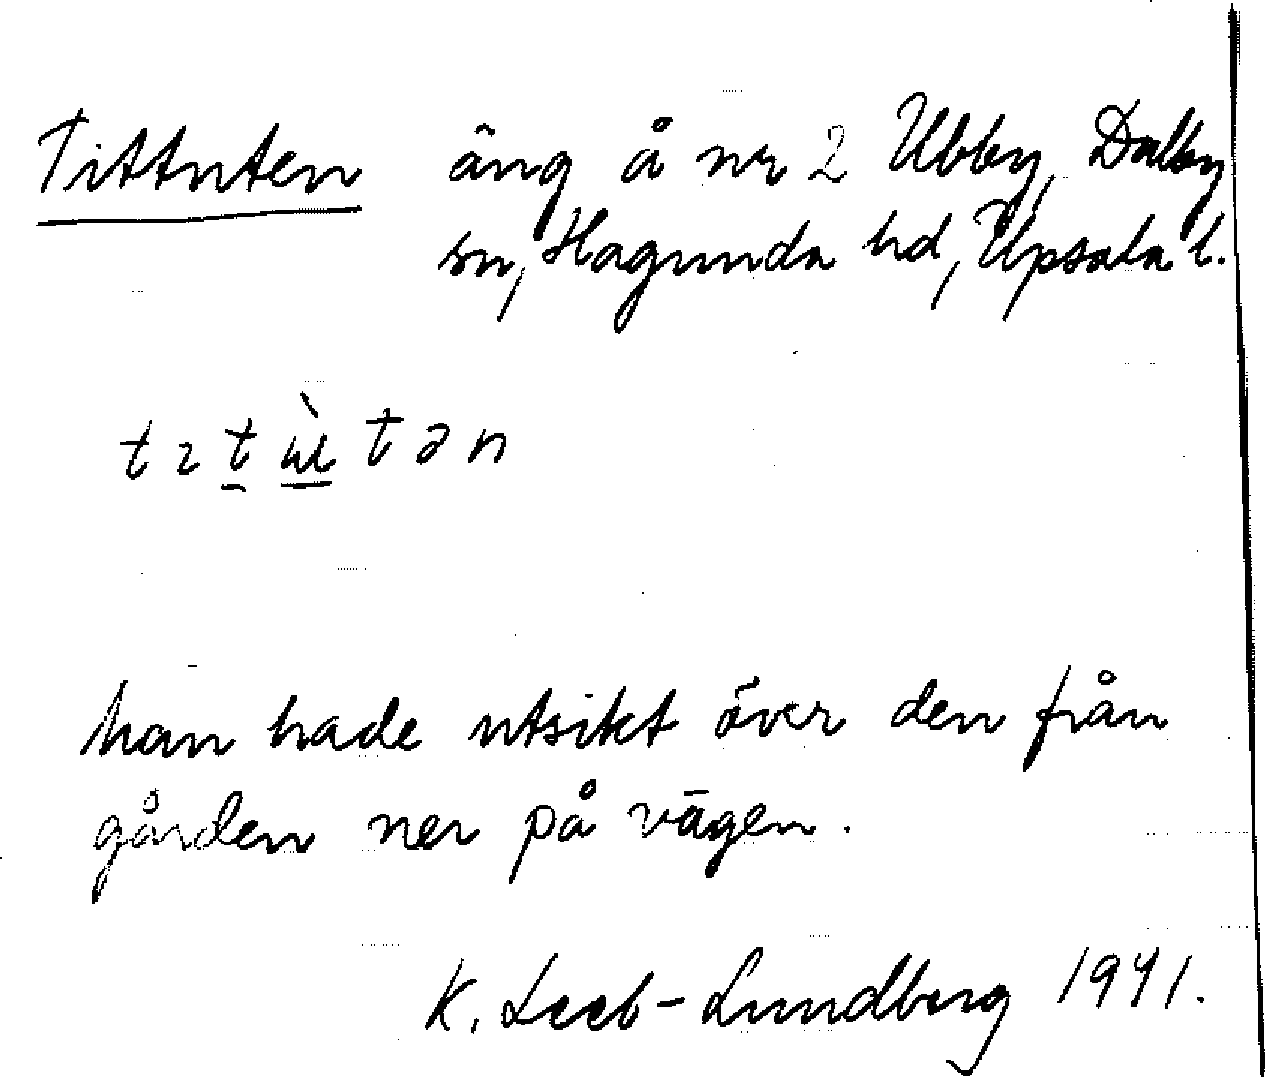 Tittuten äng å nr 2 Ubby, Dalby
sn, Hagunda hd, Upsala l.
man hade utsikt över den från
gården ner på vägen.
K. Leeb-Lundberg 1941.